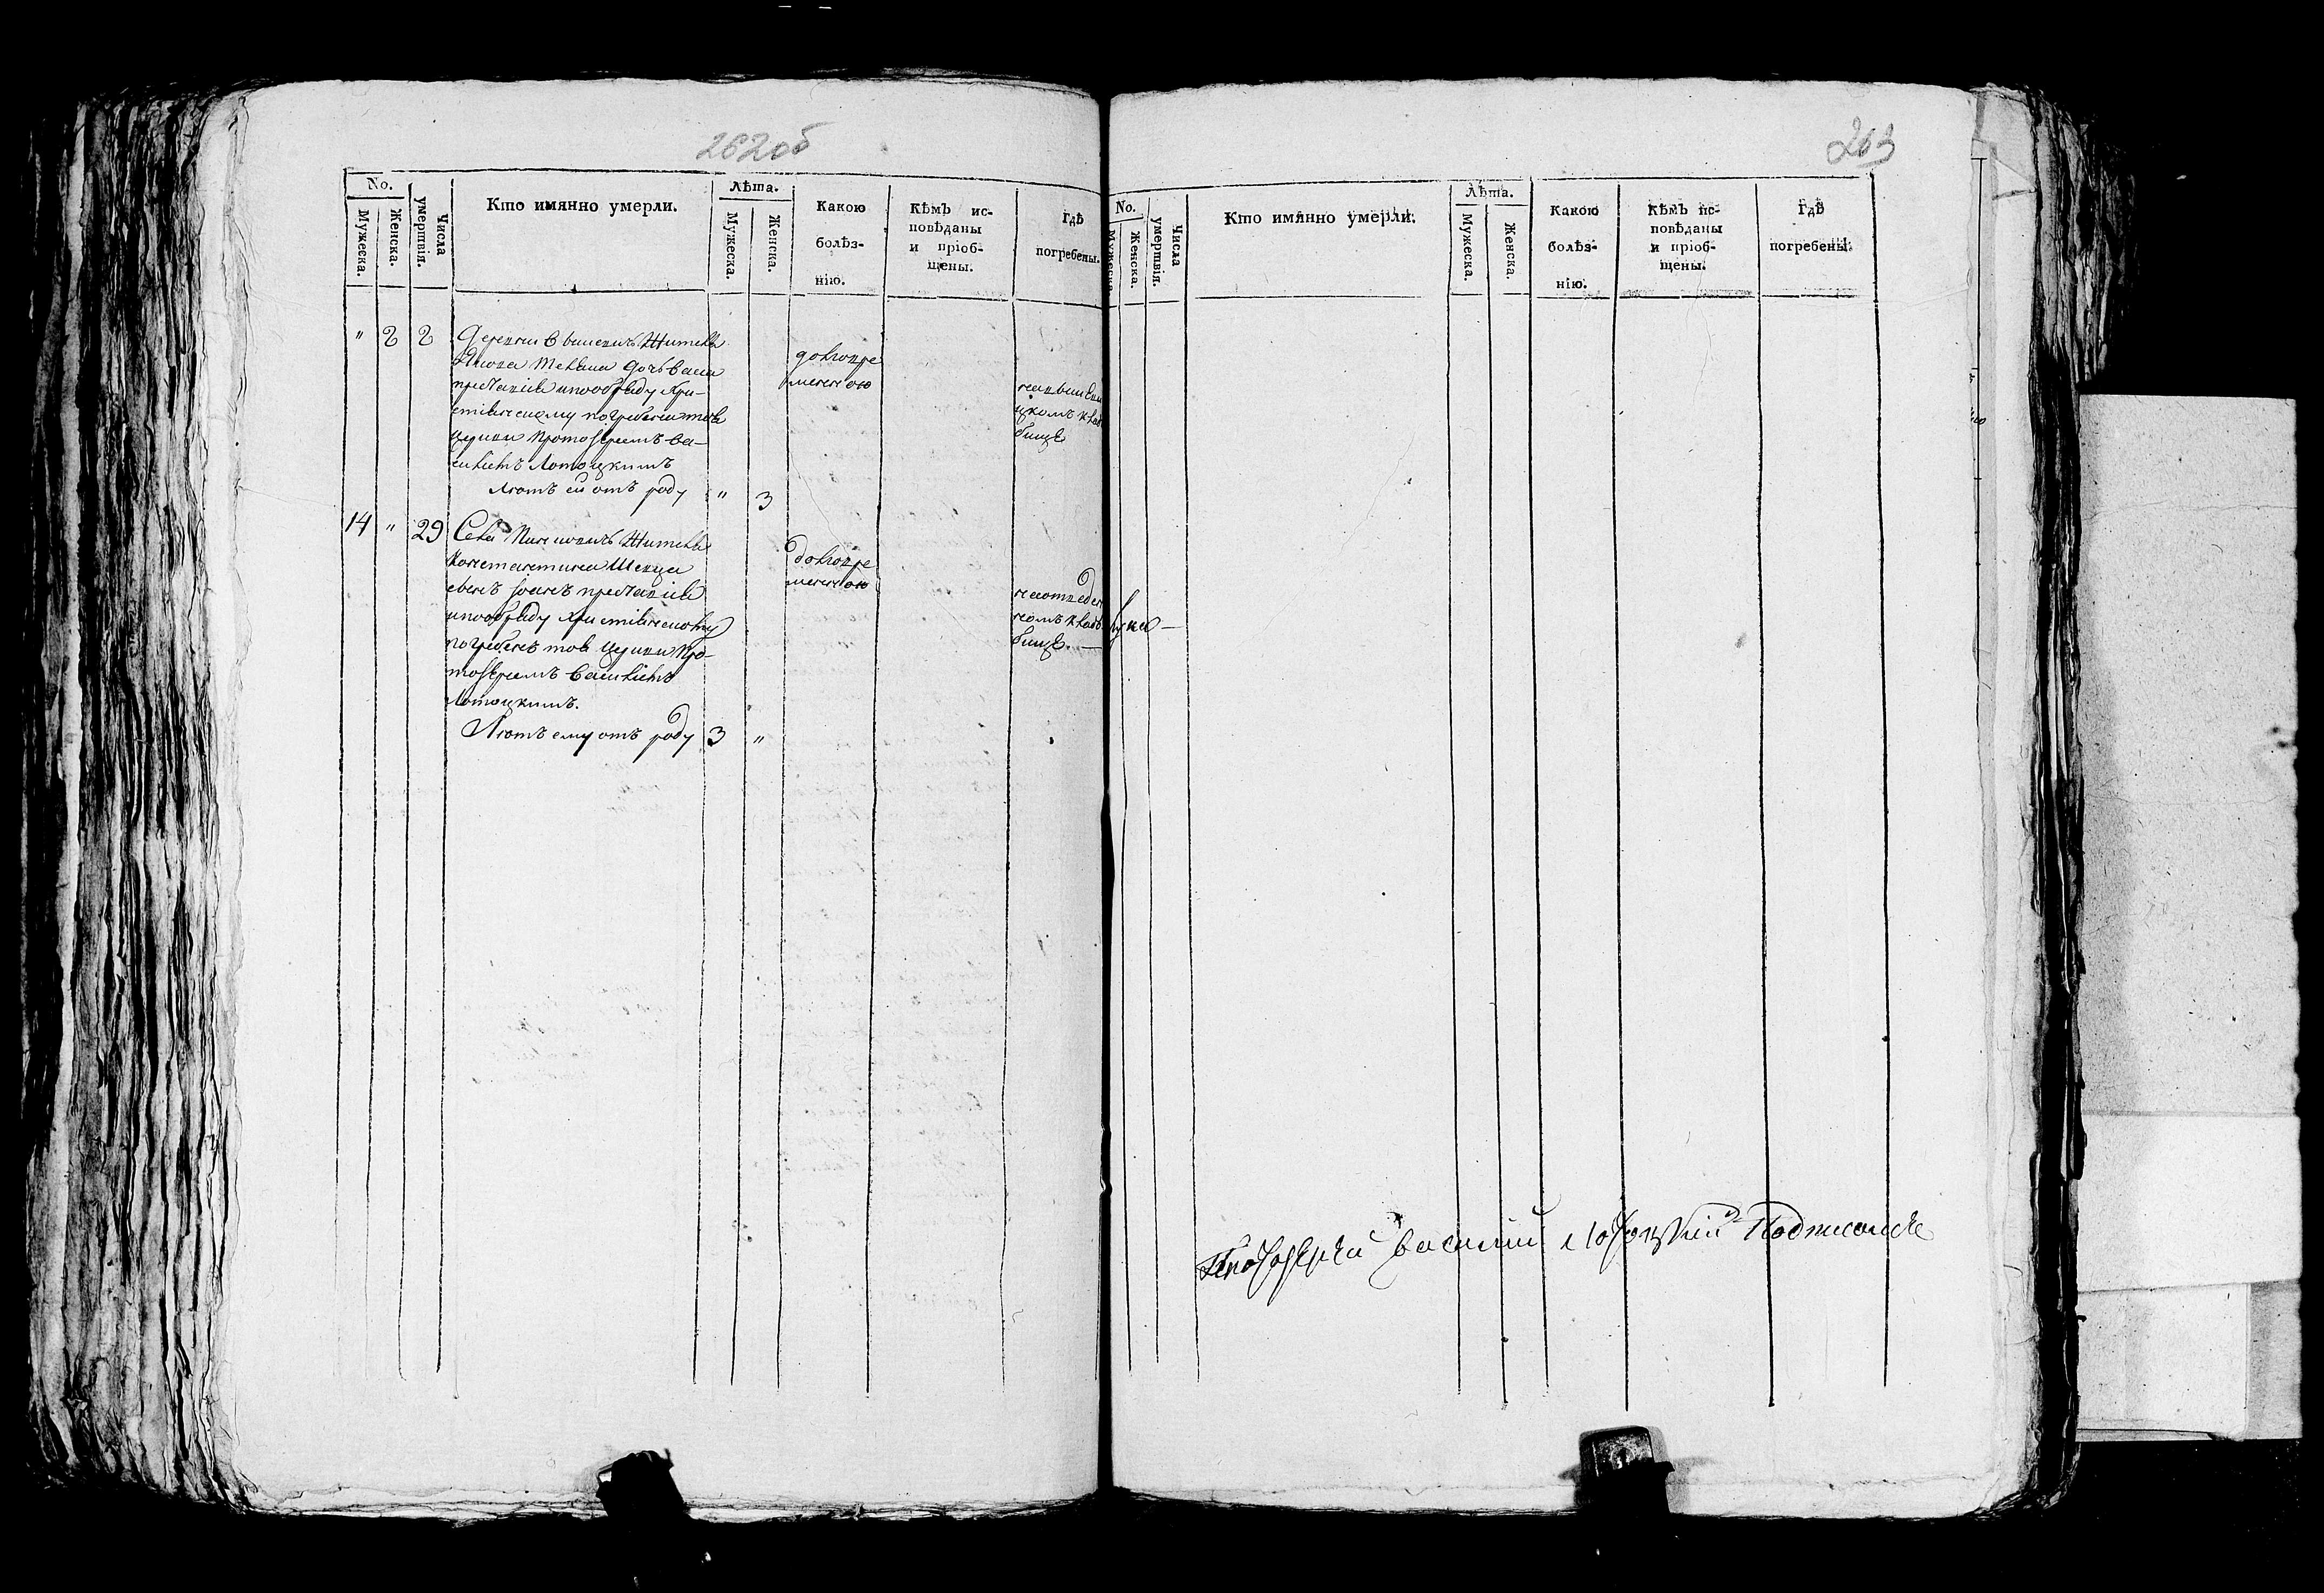 262об
No.
Мужеска.
Женска.
Числа умертвія.
Кто имянно умерли.
Лѣта.
Мужеска.
Женска.
Какою
болѣз-
нію.
Кѣмъ ис-
повѣданы
и пріоб-
щены.
Гдѣ
погребены.
" 2 2
Деревни Жителя
дочь
преставися и по обряду Хри-
стіянскому погребенна тоя
церкви Протоіереемъ Ва-
силіемъ Лотоцкимъ
Лѣтъ ей отъ роду " 3
кладъ
бищѣ
14 " 29
Села Жителя
Константина Шевца
сынъ Іоанъ преставися
и по обряду Христіянскому
погребенъ тоя Церкви Про-
тоіереемъ Василіемъ
Лотоцкимъ.
Лѣтъ ему отъ роду 3 "
кладъ
бищѣ. —
263
No.
Мужеска.
Женска.
Числа умертвія.
Кто имянно умерли.
Лѣта.
Мужеска.
Женска.
Какою
болѣз-
нію.
Кѣмъ ис-
повѣданы
и пріоб-
щены.
Гдѣ
погребены.
Протоіерей Василий Лотоцкий Подписался